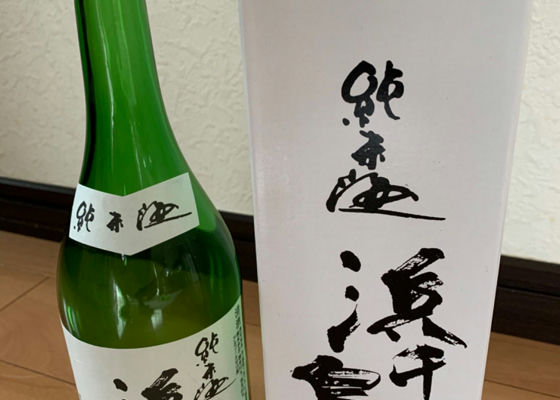 純米酒
純米酒
浜千
純米酒
浜